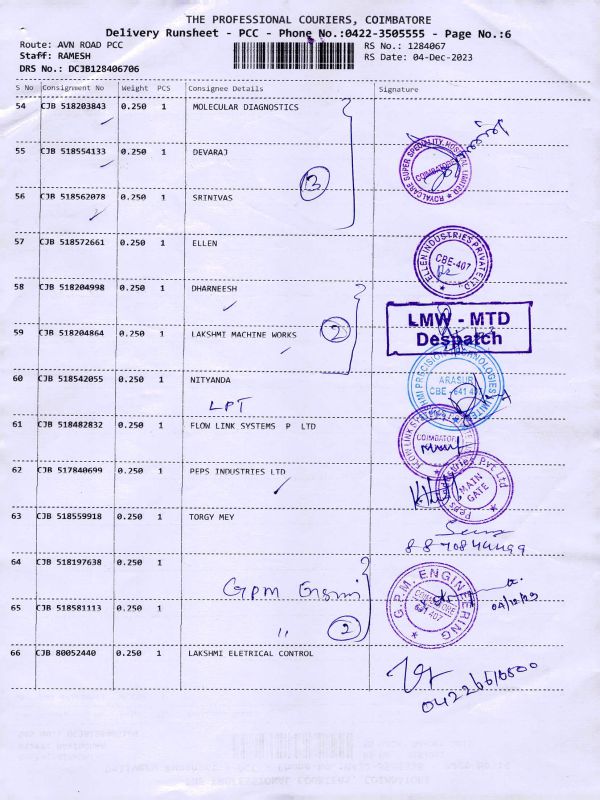 THE PROFESSIONAL COURIERS, COIMBATORE
Delivery Runsheet - PCC - Phone No.:0422-3505555 - Page No.:6
Route: AVN ROAD PCC
RS No.: 1284067
Staff: RAMESH
RS Date: 04-Dec-2023
DRS No.: DCJB128406706
S No Consignment No Weight PCS Consignee Details Signature
54 CJB 518203843 0.250 1 MOLECULAR DIAGNOSTICS
55 CJB 518554133 0.250 1 DEVARAJ
ROYALCARE SUPER SPECIALITY HOSPITAL LIMITED
COIMBATORE
3
56 CJB 518562078 0.250 1 SRINIVAS
57 CJB 518572661 0.250 1 ELLEN
ELLEN INDUSTRIES PRIVATE LTD.
CBE-407
58 CJB 518204998 0.250 1 DHARNEESH
LMW - MTD
Despatch
59 CJB 518204864 0.250 1 LAKSHMI MACHINE WORKS
2
60 CJB 518542055 0.250 1 NITYANDA
LPT
PRECISION TECHNOLOGIES LIMITED
ARASUR
CBE - 641 407
61 CJB 518482832 0.250 1 FLOW LINK SYSTEMS P LTD
FLOW LINK
COIMBATORE
62 CJB 517840699 0.250 1 PEPS INDUSTRIES LTD
Peps Industries Pvt Ltd
MAIN
GATE
63 CJB 518559918 0.250 1 TORGY MEY
64 CJB 518197638 0.250 1
GPM
G.P.M. ENGINEERING
COIMBATORE
641 407
04/12/23
65 CJB 518581113 0.250 1
"
2
66 CJB 80052440 0.250 1 LAKSHMI ELETRICAL CONTROL